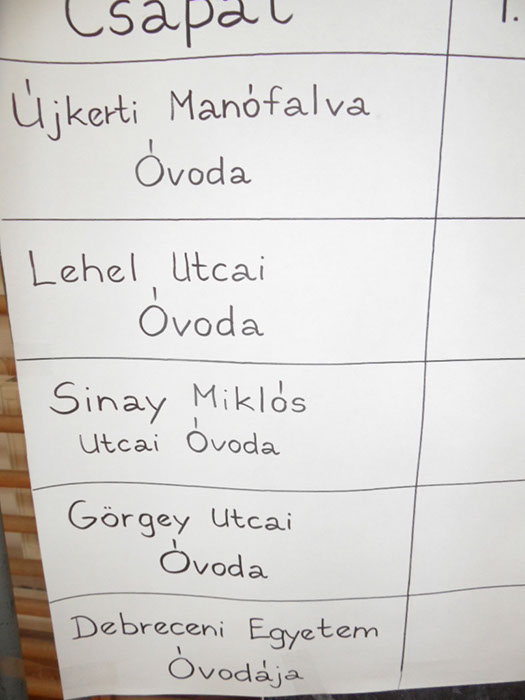 Csapat 1.
Újkerti Manófalva
Óvoda
Lehel Utcai
Óvoda
Sinay Miklós
Utcai Óvoda
Görgey Utcai
Óvoda
Debreceni Egyetem
Óvodája